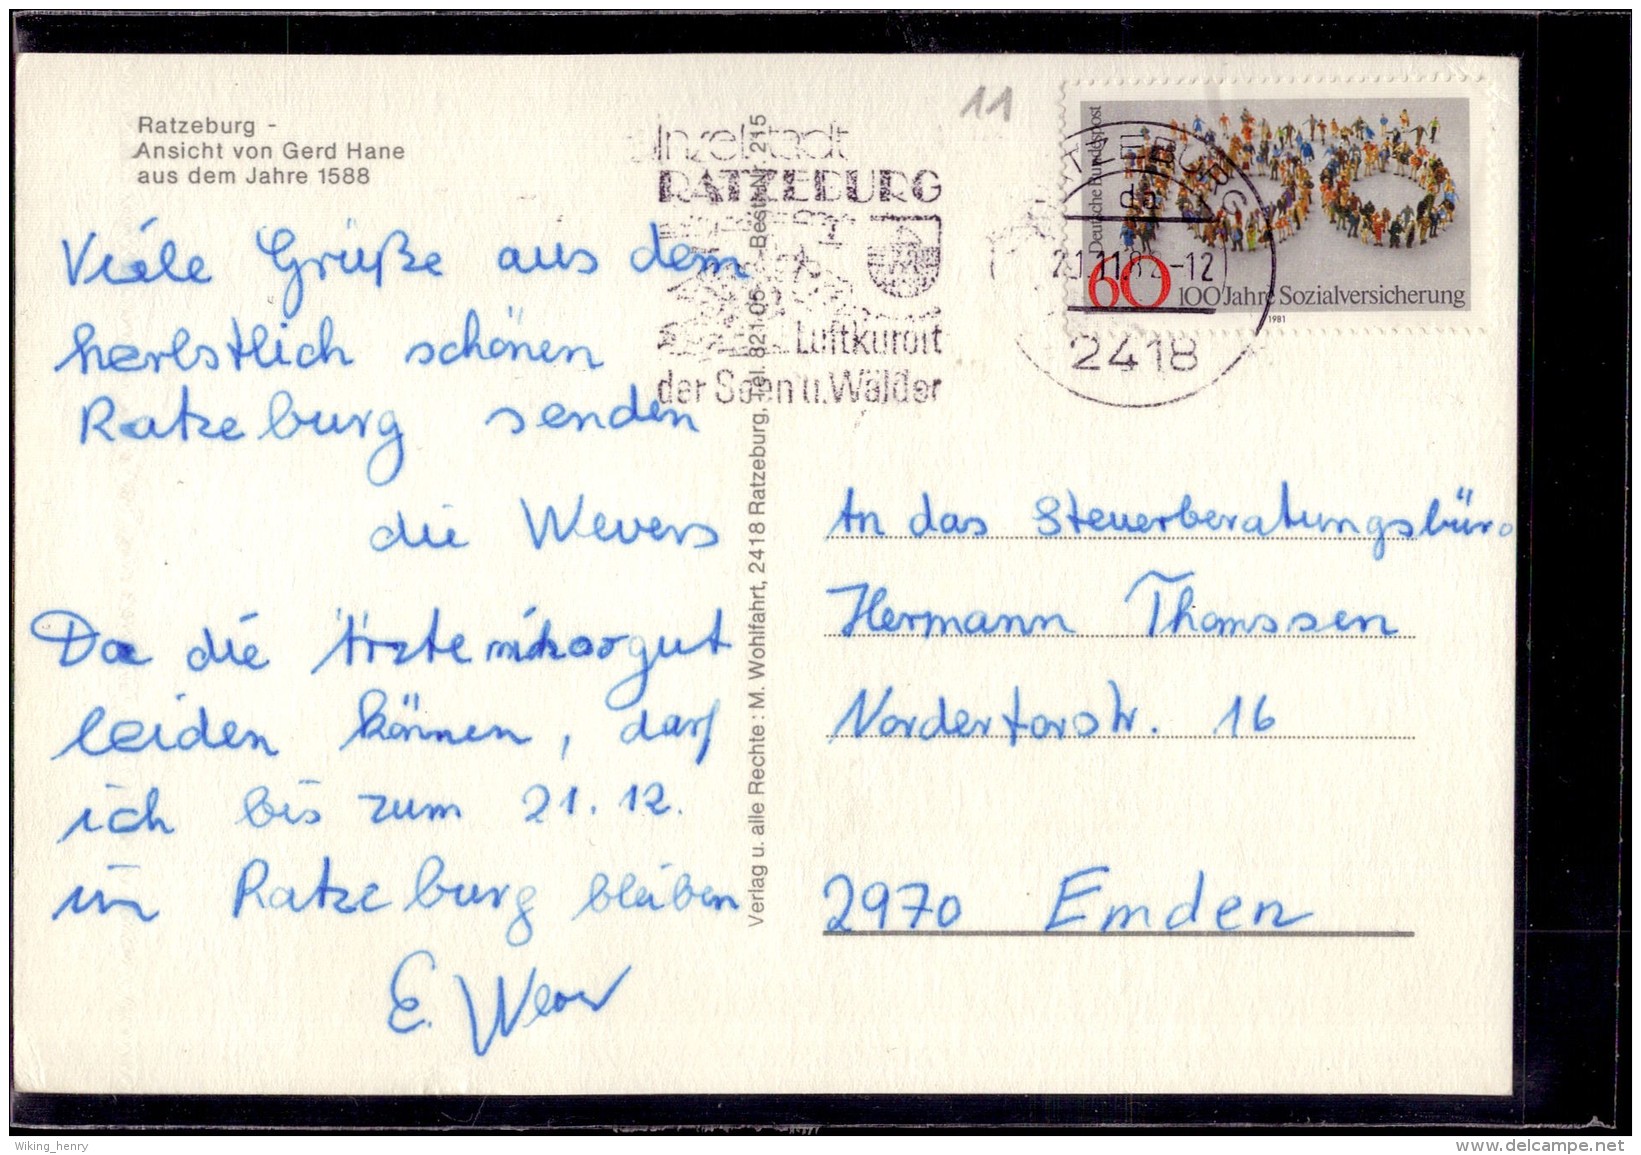 Ratzeburg -
Ansicht von Gerd Hane
aus dem Jahre 1588
11
Inselstadt
RATZEBURG
Luftkurort
der Seen u. Wälder
Deutsche Bundespost
60
100 Jahre Sozialversicherung
1981
2418
Viele Grüße aus dem
herbstlich schönen
Ratzeburg senden
die Wevers
Da die Ärzte mich so gut
leiden können, darf
ich bis zum 21.12.
in Ratzeburg bleiben
E. Wever
Verlag u. alle Rechte: M. Wohlfahrt, 2418 Ratzeburg, Tel. 821 05 Best.-Nr. 215
An das Steuerberatungsbüro
Hermann Thomssen
Nordertorstr. 16
2970 Emden
Wiking_henry
www.delcampe.net